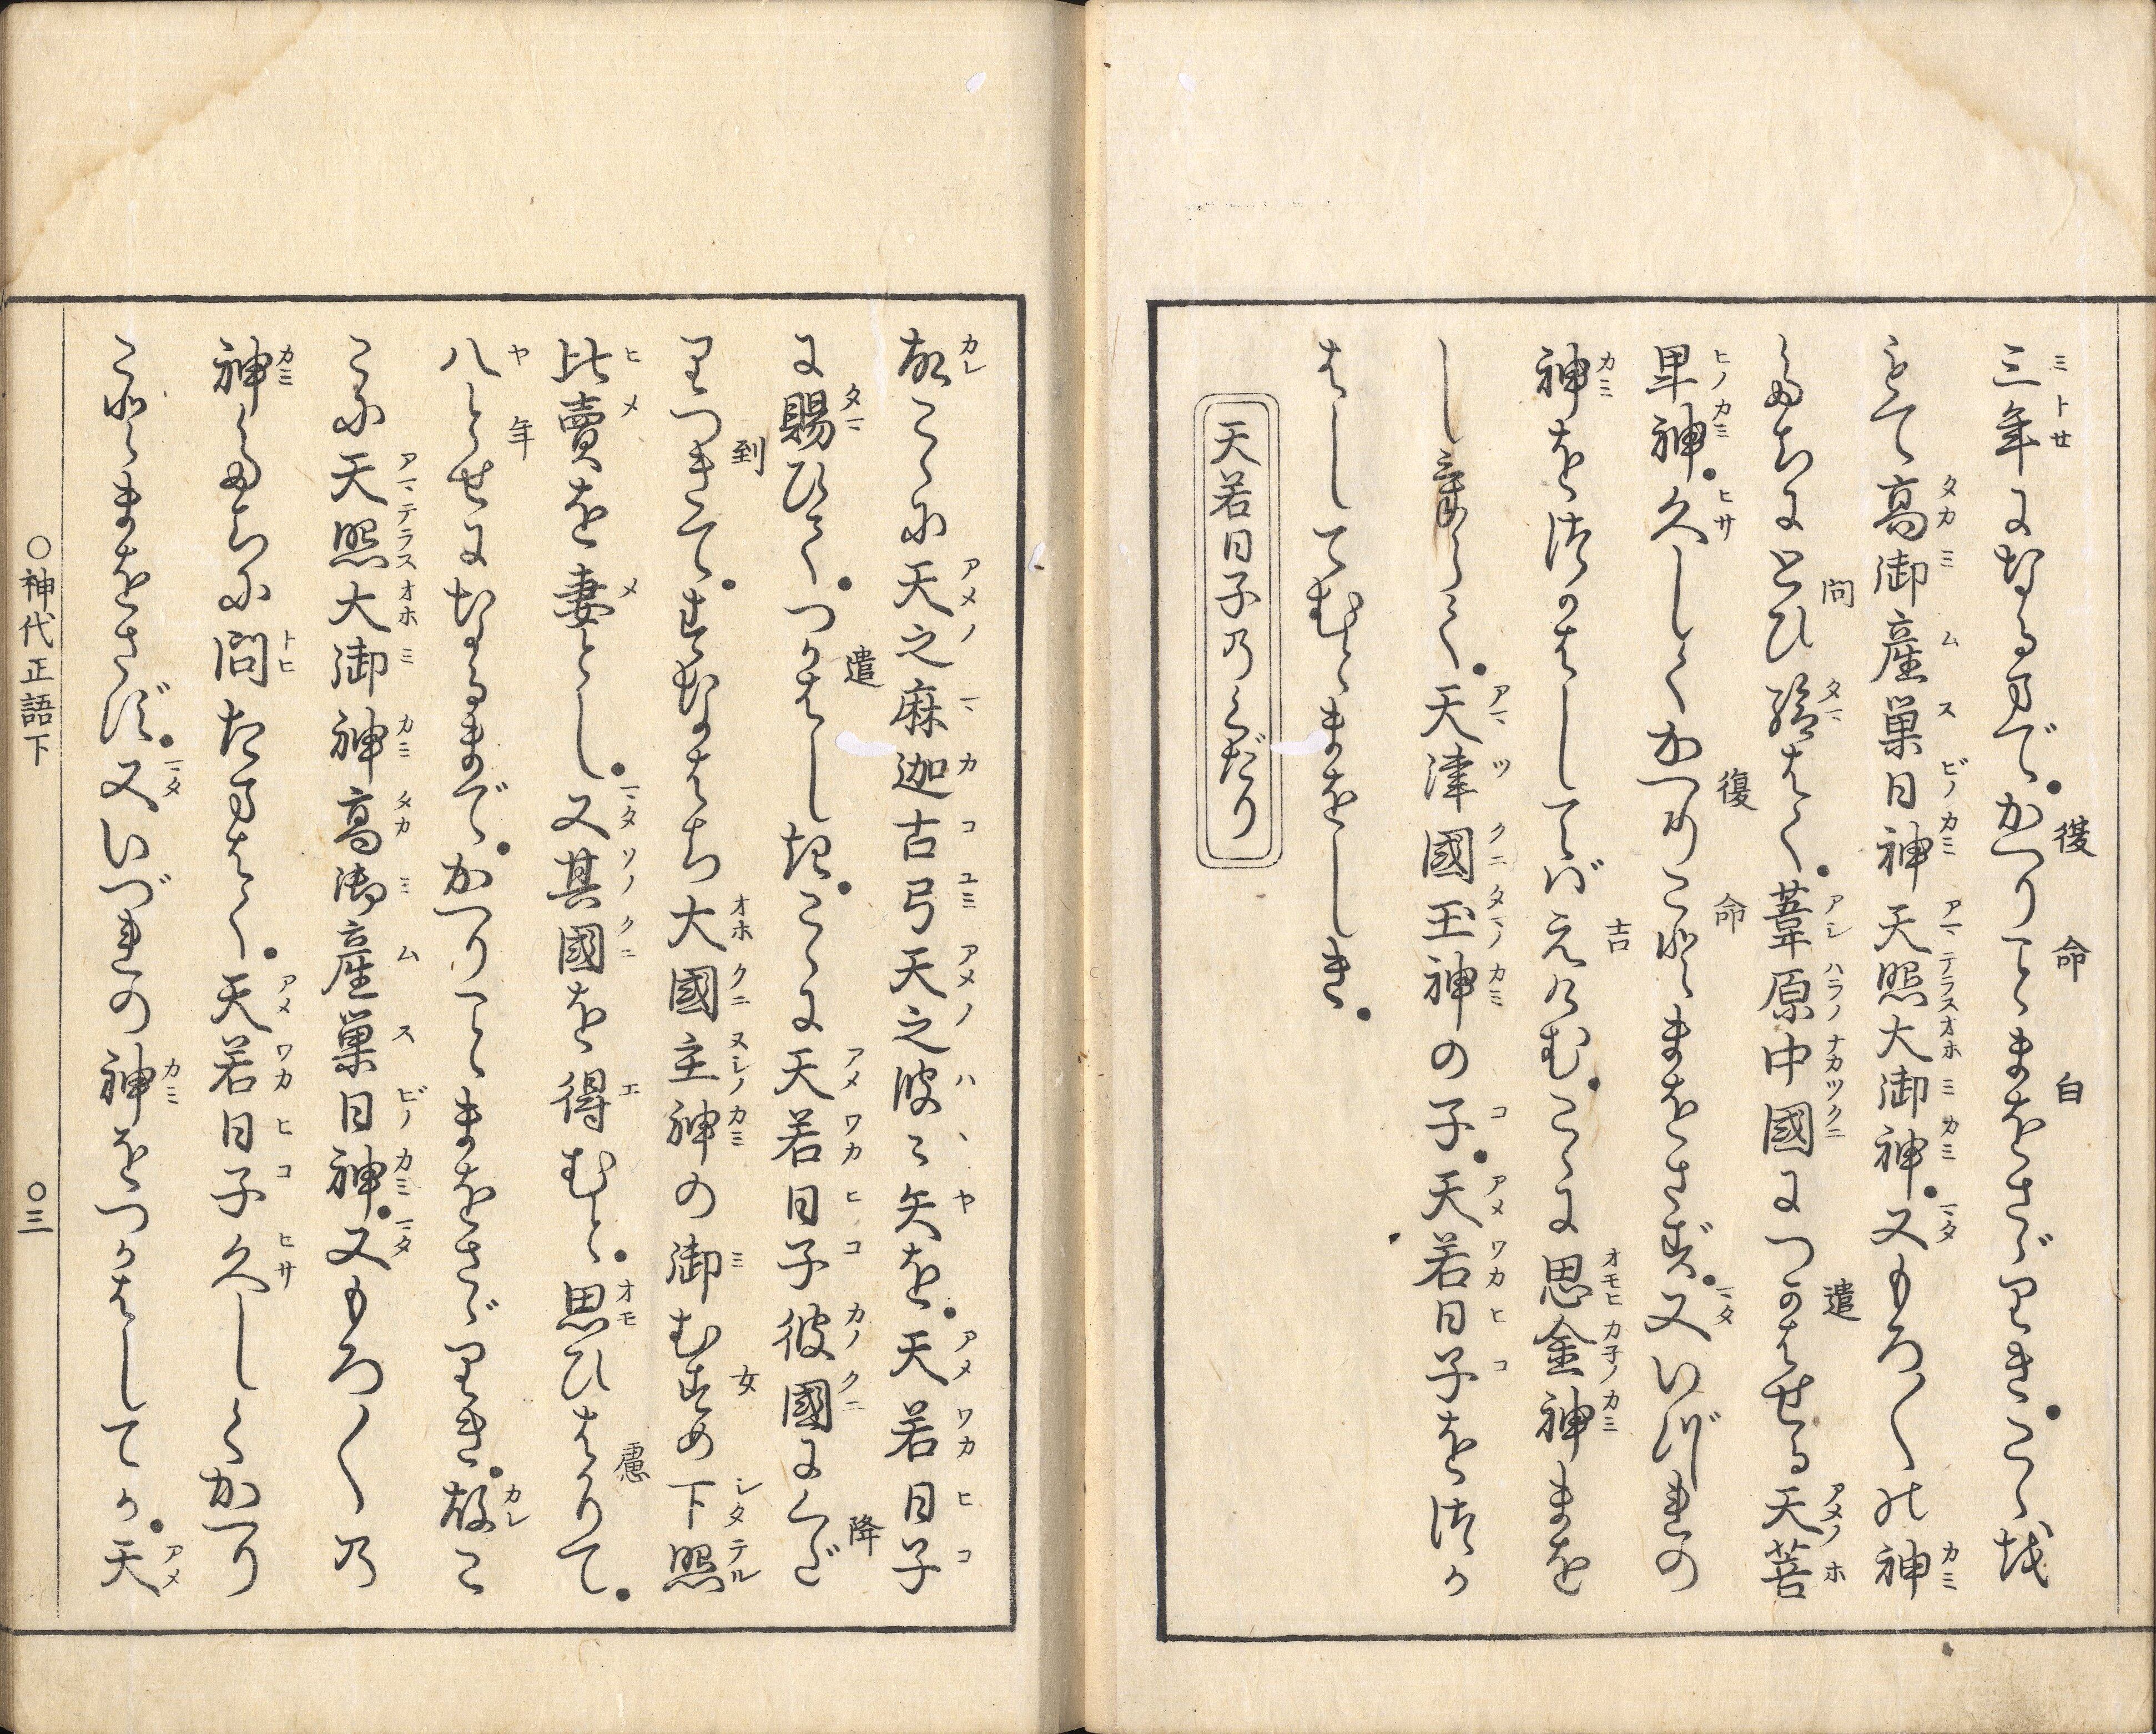 三年になるまで。かへりことまをさゞりき。こゝを
もて高御産巣日神天照大御神。又もろ〳〵の神
たちにとひ給はく。葦原中國につかはせる天菩
卑神。久しくかへりことまをさず。又いづれの
神をつかはしてばえけむ。こゝに思金神まを
しけらく。天津國玉神の子。天若日子をつか
はしてむとまをしき。
天若日子乃くだり
故こゝに天之麻迦古弓天之波々矢を。天若日子
に賜ひて。つかはしき。こゝに天若日子彼國にくだ
りつきて。すなはち大國主神の御むすめ下照
比賣を妻とし。又其國を得むと。思ひはかりて。
八とせになるまで。かへりことまをさゞりき。故こ
こに天照大御神高御産巣日神。又もろ〳〵乃
神たちに問たまはく。天若日子久しくかへり
ことまをさず。又いづれの神をつかはしてか。天
○神代正語下
○三